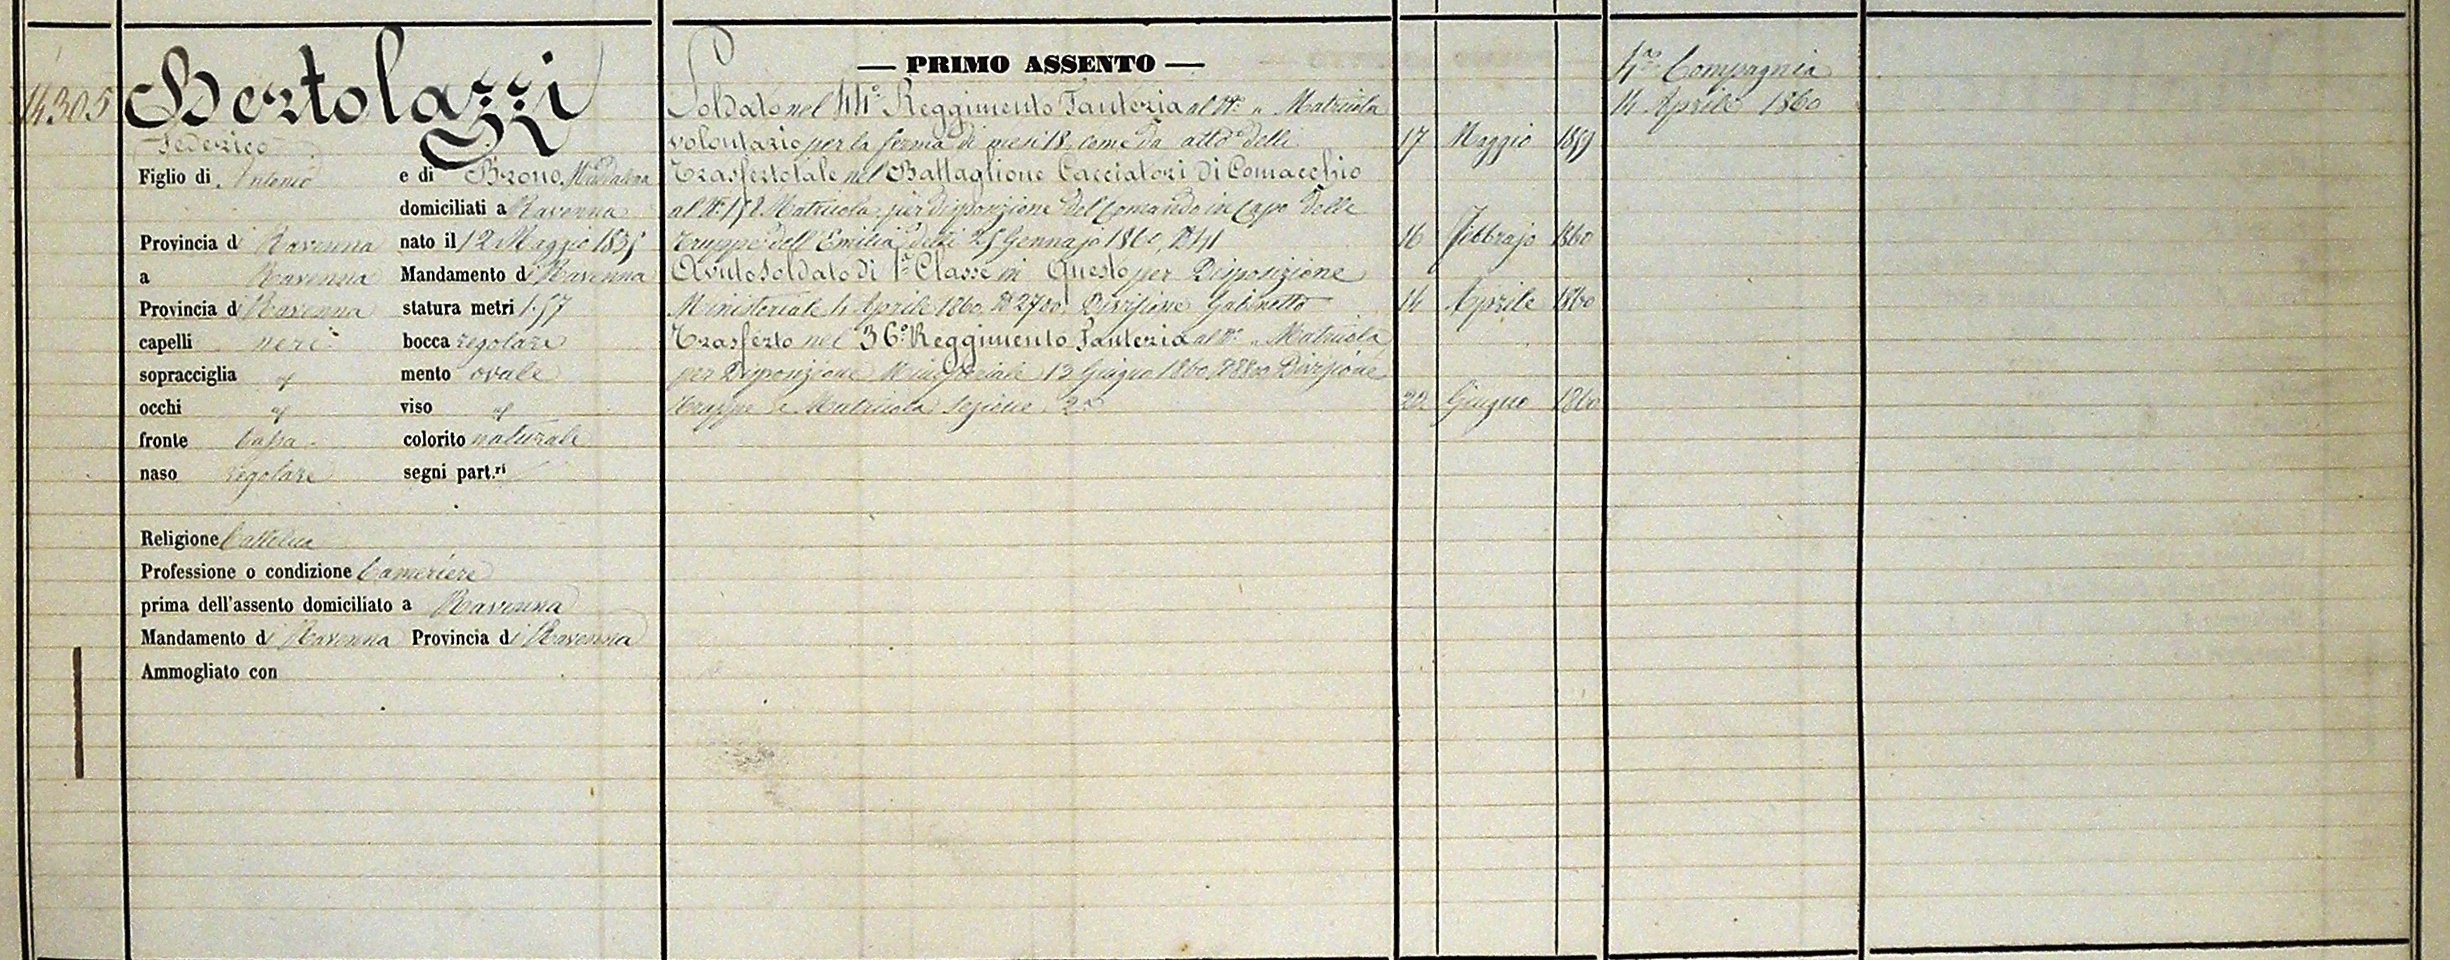 14305
Bertolazzi
Federico
Figlio di Antonio e di Brono Maddalena
domiciliati a Ravenna
Provincia di Ravenna nato il 12 Maggio 1835
a Ravenna Mandamento di Ravenna
Provincia di Ravenna statura metri 1.57
capelli neri bocca regolare
sopracciglia id mento ovale
occhi id viso id
fronte bassa colorito naturale
naso regolare segni part.ri
Religione Cattolica
Professione o condizione Cameriere
prima dell'assento domiciliato a Ravenna
Mandamento di Ravenna Provincia di Ravenna
Ammogliato con
— PRIMO ASSENTO —
Soldato nel 44° Reggimento Fanteria al N° " Matricola
volontario per la ferma di mesi 18 come da atto delli 17 Maggio 1859
Trasferto tale nel Battaglione Cacciatori di Comacchio
al N° 152 Matricola per disposizione del Comando in Capo delle
Truppe dell'Emilia delli 25 Gennajo 1860, N° 41 16 Febbrajo 1860
Avuto soldato di 1a Classe in Questo per Disposizione
Ministeriale 4 Aprile 1860 N° 2700 Divisione Gabinetto 14 Aprile 1860
Trasferto nel 36° Reggimento Fanteria al N° " Matricola
per Disposizione Ministeriale 13 Giugno 1860 N° 8800 Divisione
Truppe e Matricola Sezione 2a 22 Giugno 1860
4a Compagnia
14 Aprile 1860